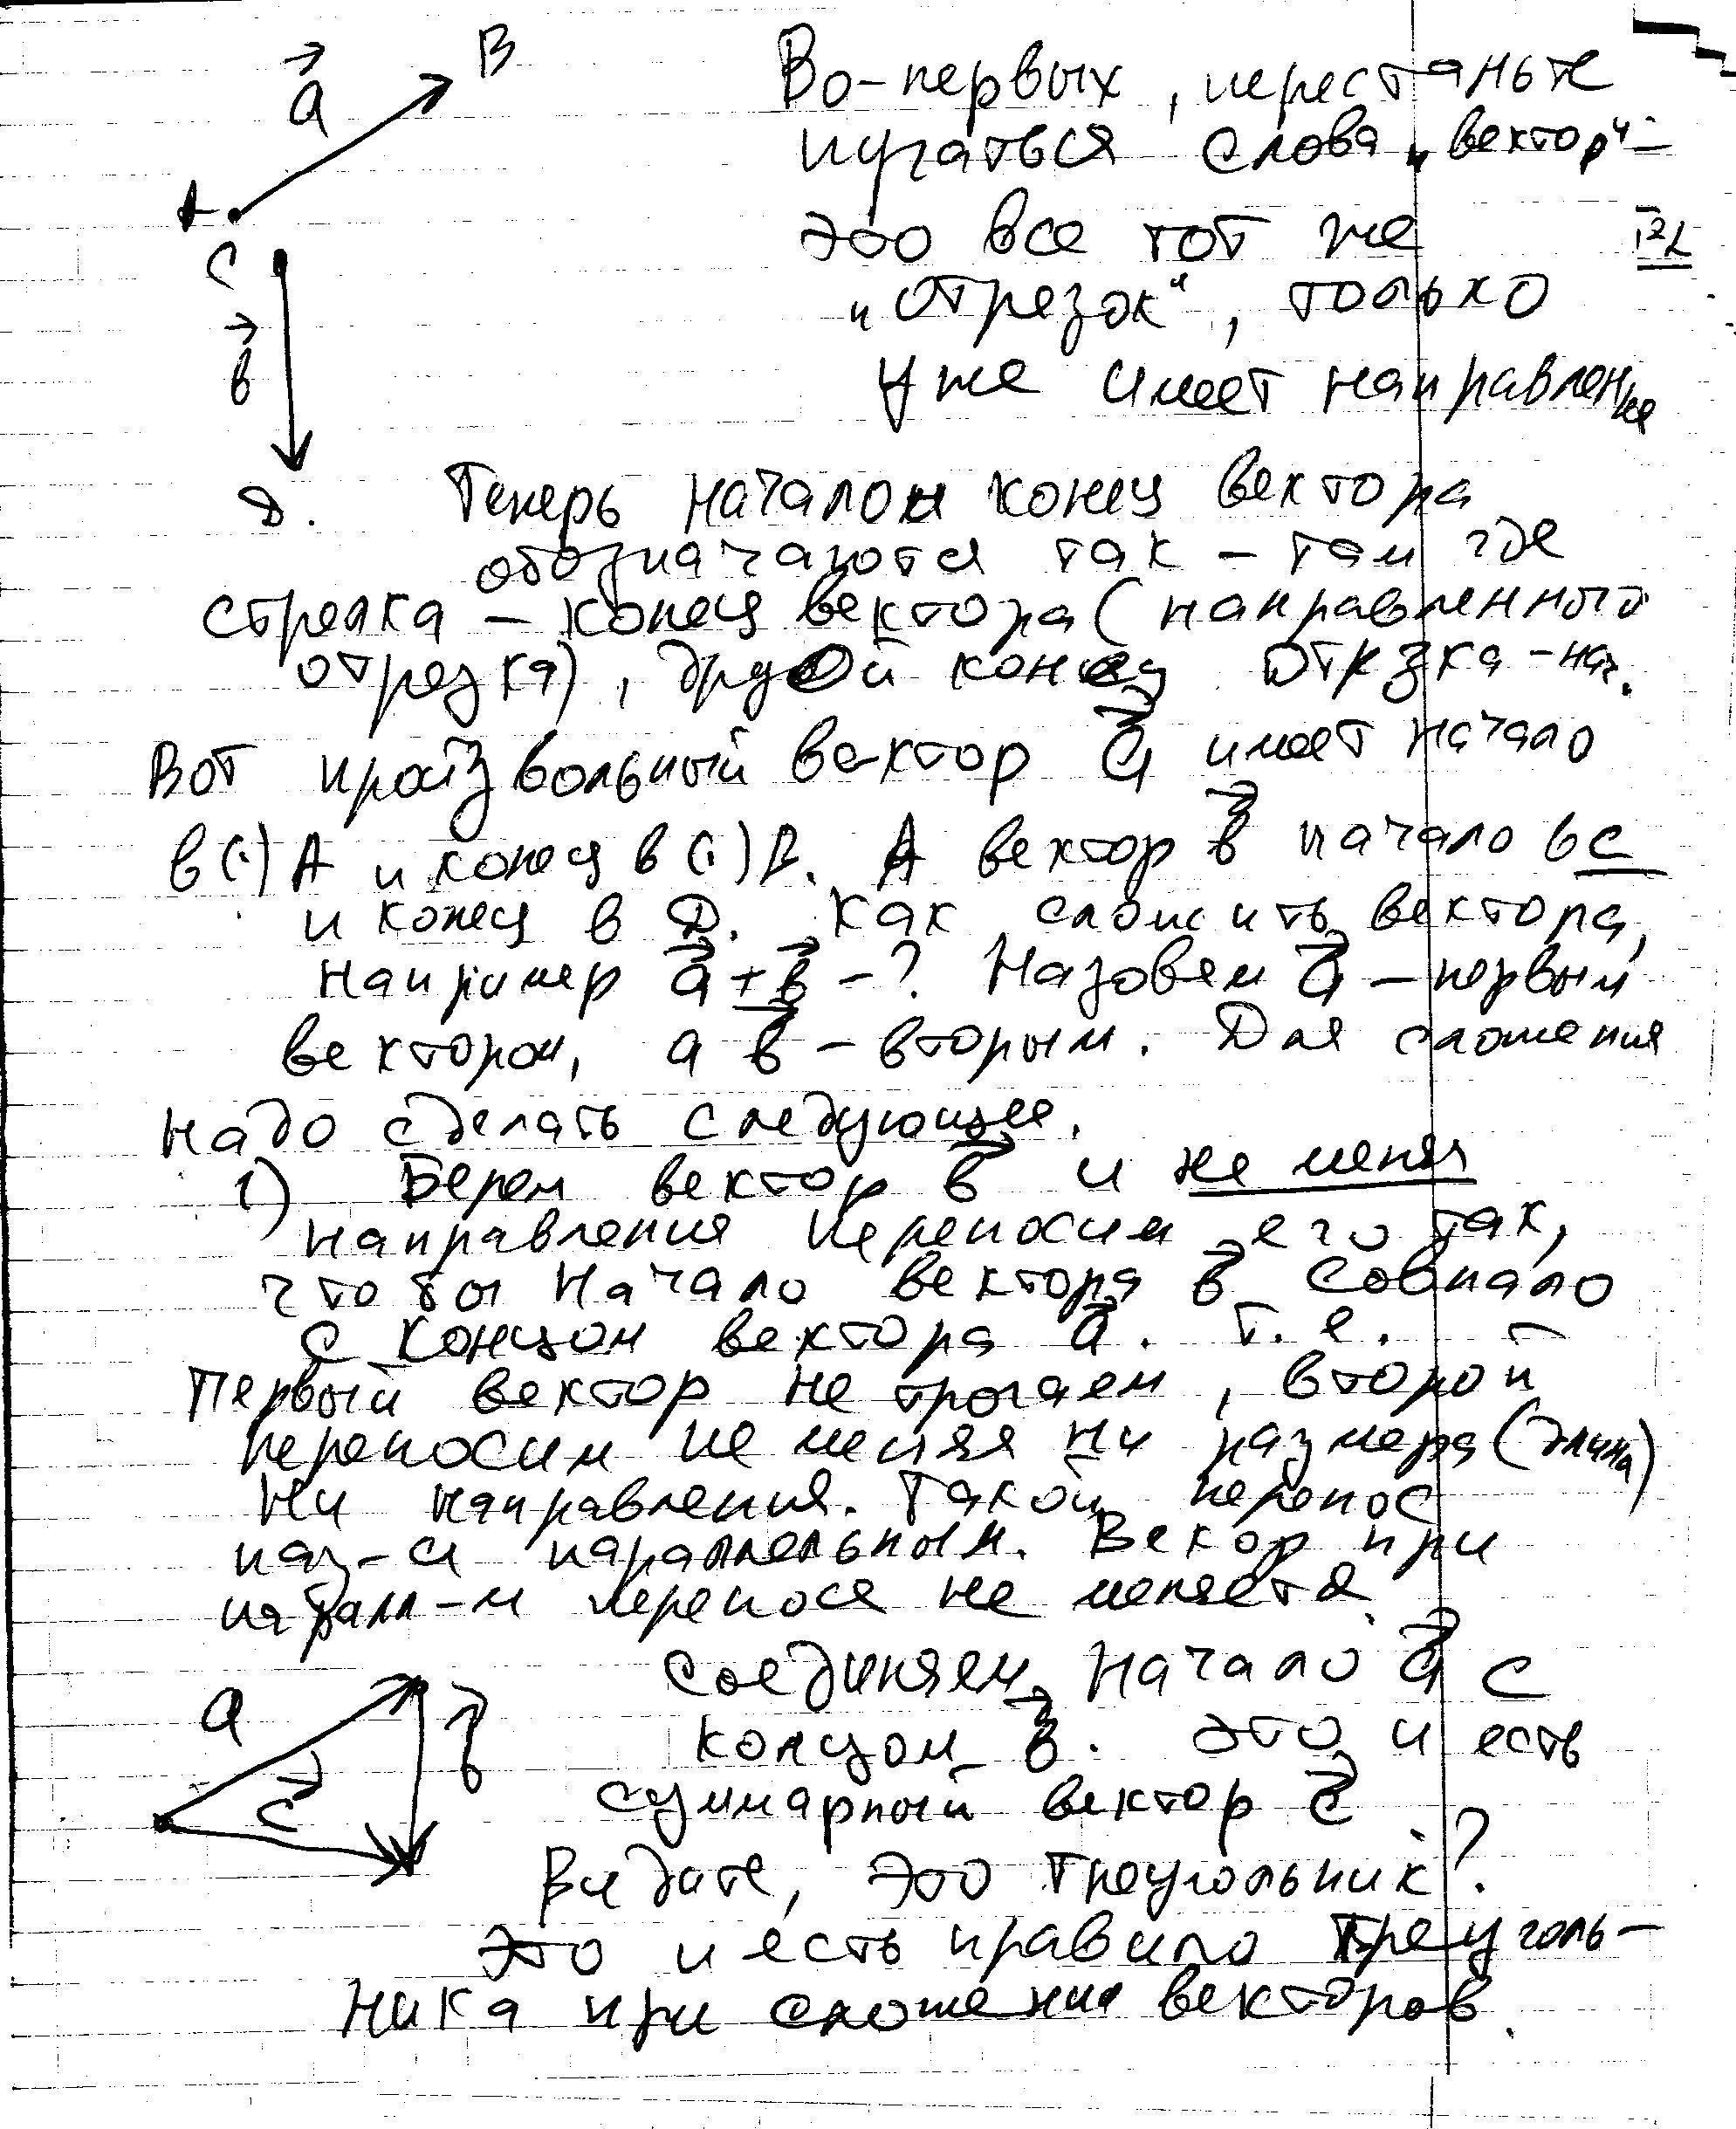 a⃗ B
A
C
b⃗
Д.
Во-первых, перестаньте
пугаться слова „вектор" –
это все тот же
„отрезок", только
уже имеет направление
Теперь начало и конец вектора
обозначаются так – там где
стрелка – конец вектора (направленного
отрезка), другой конец отрзка – нач.
Вот произвольный вектор a⃗ имеет начало
в (·) A и конец в (·) B. А вектор b⃗ начало в C
и конец в Д. Как сложить вектора,
например a⃗ + b⃗ – ? Назовем a⃗ – первым
вектором, а b⃗ – вторым. Для сложения
надо сделать следующее.
1) Берем вектор b⃗ и не меняя
направления переносим его так,
чтобы начало вектора b⃗ совпало
с концом вектора a⃗. Т.е. –
Первый вектор не трогаем, второй
переносим не меняя ни размера (длина)
ни направления. Такой перенос
наз-ся параллельным. Векор при
паралл-м переносе не меняется.
Соединяем начало a⃗ с
концом b⃗. Это и есть
суммарный вектор c⃗.
a b⃗
c⃗
Видите, это треугольник?
Это и есть правило треуголь-
ника при сложении векторов.